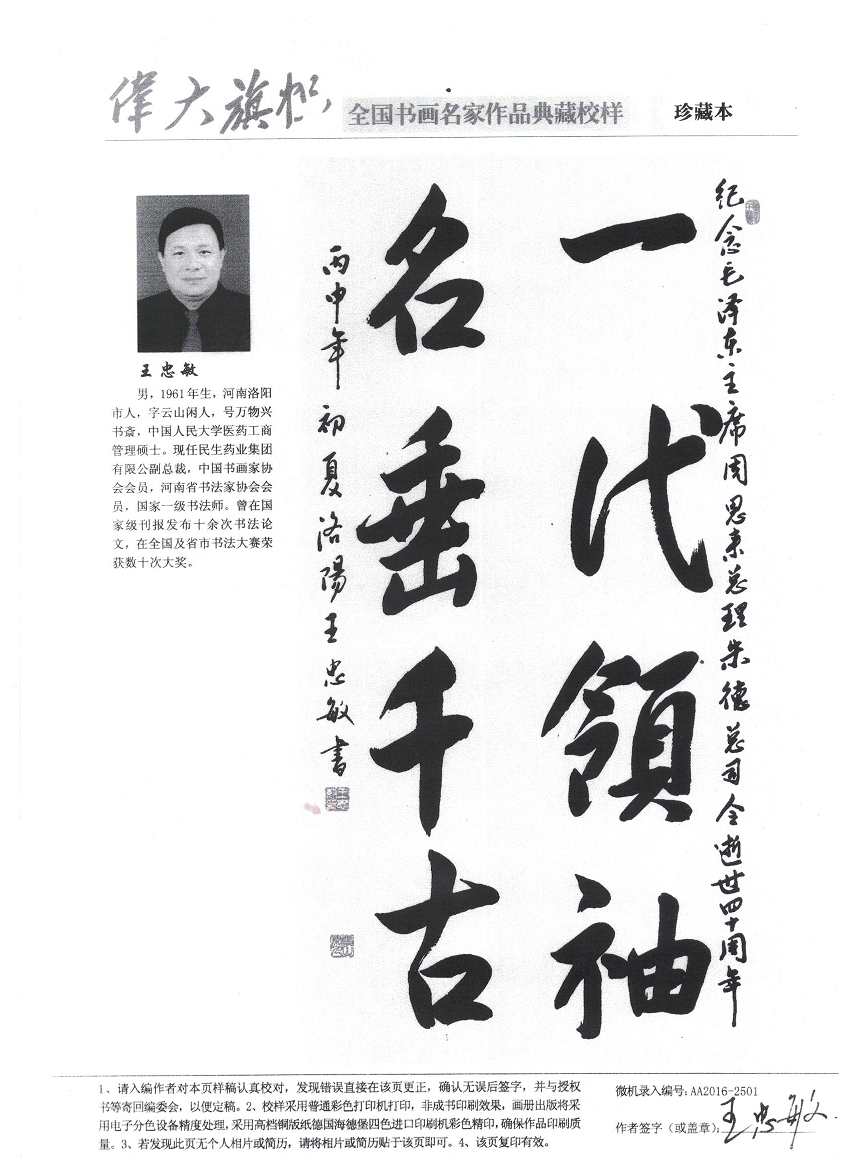 偉大旗帜
全国书画名家作品典藏校样
珍藏本
王忠敏
男，1961年生，河南洛阳
市人，字云山闲人，号万物兴
书斋，中国人民大学医药工商
管理硕士。现任民生药业集团
有限公副总裁，中国书画家协
会会员，河南省书法家协会会
员，国家一级书法师。曾在国
家级刊报发布十余次书法论
文，在全国及省市书法大赛荣
获数十次大奖。
纪念毛泽东主席周恩来总理朱德总司令逝世四十周年
一代領袖
名垂千古
丙申年初夏洛陽王忠敏書
1、请入编作者对本页样稿认真校对，发现错误直接在该页更正，确认无误后签字，并与授权
书等寄回编委会，以便定稿。2、校样采用普通彩色打印机打印，非成书印刷效果，画册出版将采
用电子分色设备精度处理，采用高档铜版纸德国海德堡四色进口印刷机彩色精印，确保作品印刷质
量。3、若发现此页无个人相片或简历，请将相片或简历贴于该页即可。4、该页复印有效。
微机录入编号：AA2016-2501
作者签字（或盖章）：王忠敏